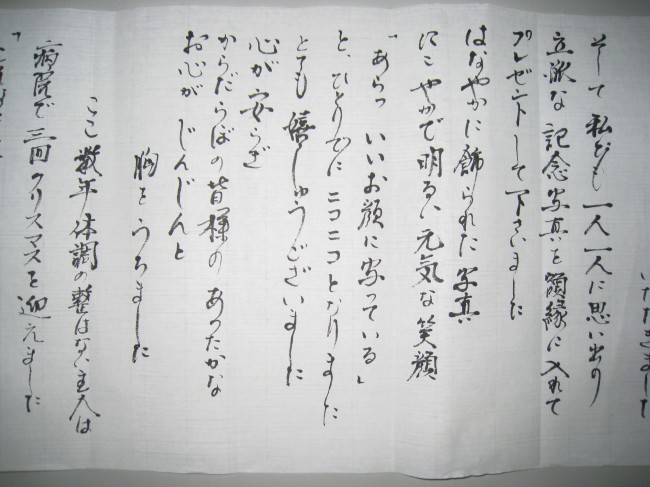 いただきまして
そして私ども一人一人に思い出の
立派な記念写真を額縁に入れて
プレゼントして下さいました
はなやかに飾られた写真
にこやかで明るい元気な笑顔
「あらっ いいお顔に写っている」
と、ひとりでにニコニコとなりました
とても嬉しゅうございました
心が安らぎ
からだらぼの皆様のあったかな
お心が じんじんと
胸をうちました
ここ数年体調の整はない主人は
病院で三回クリスマスを迎えました